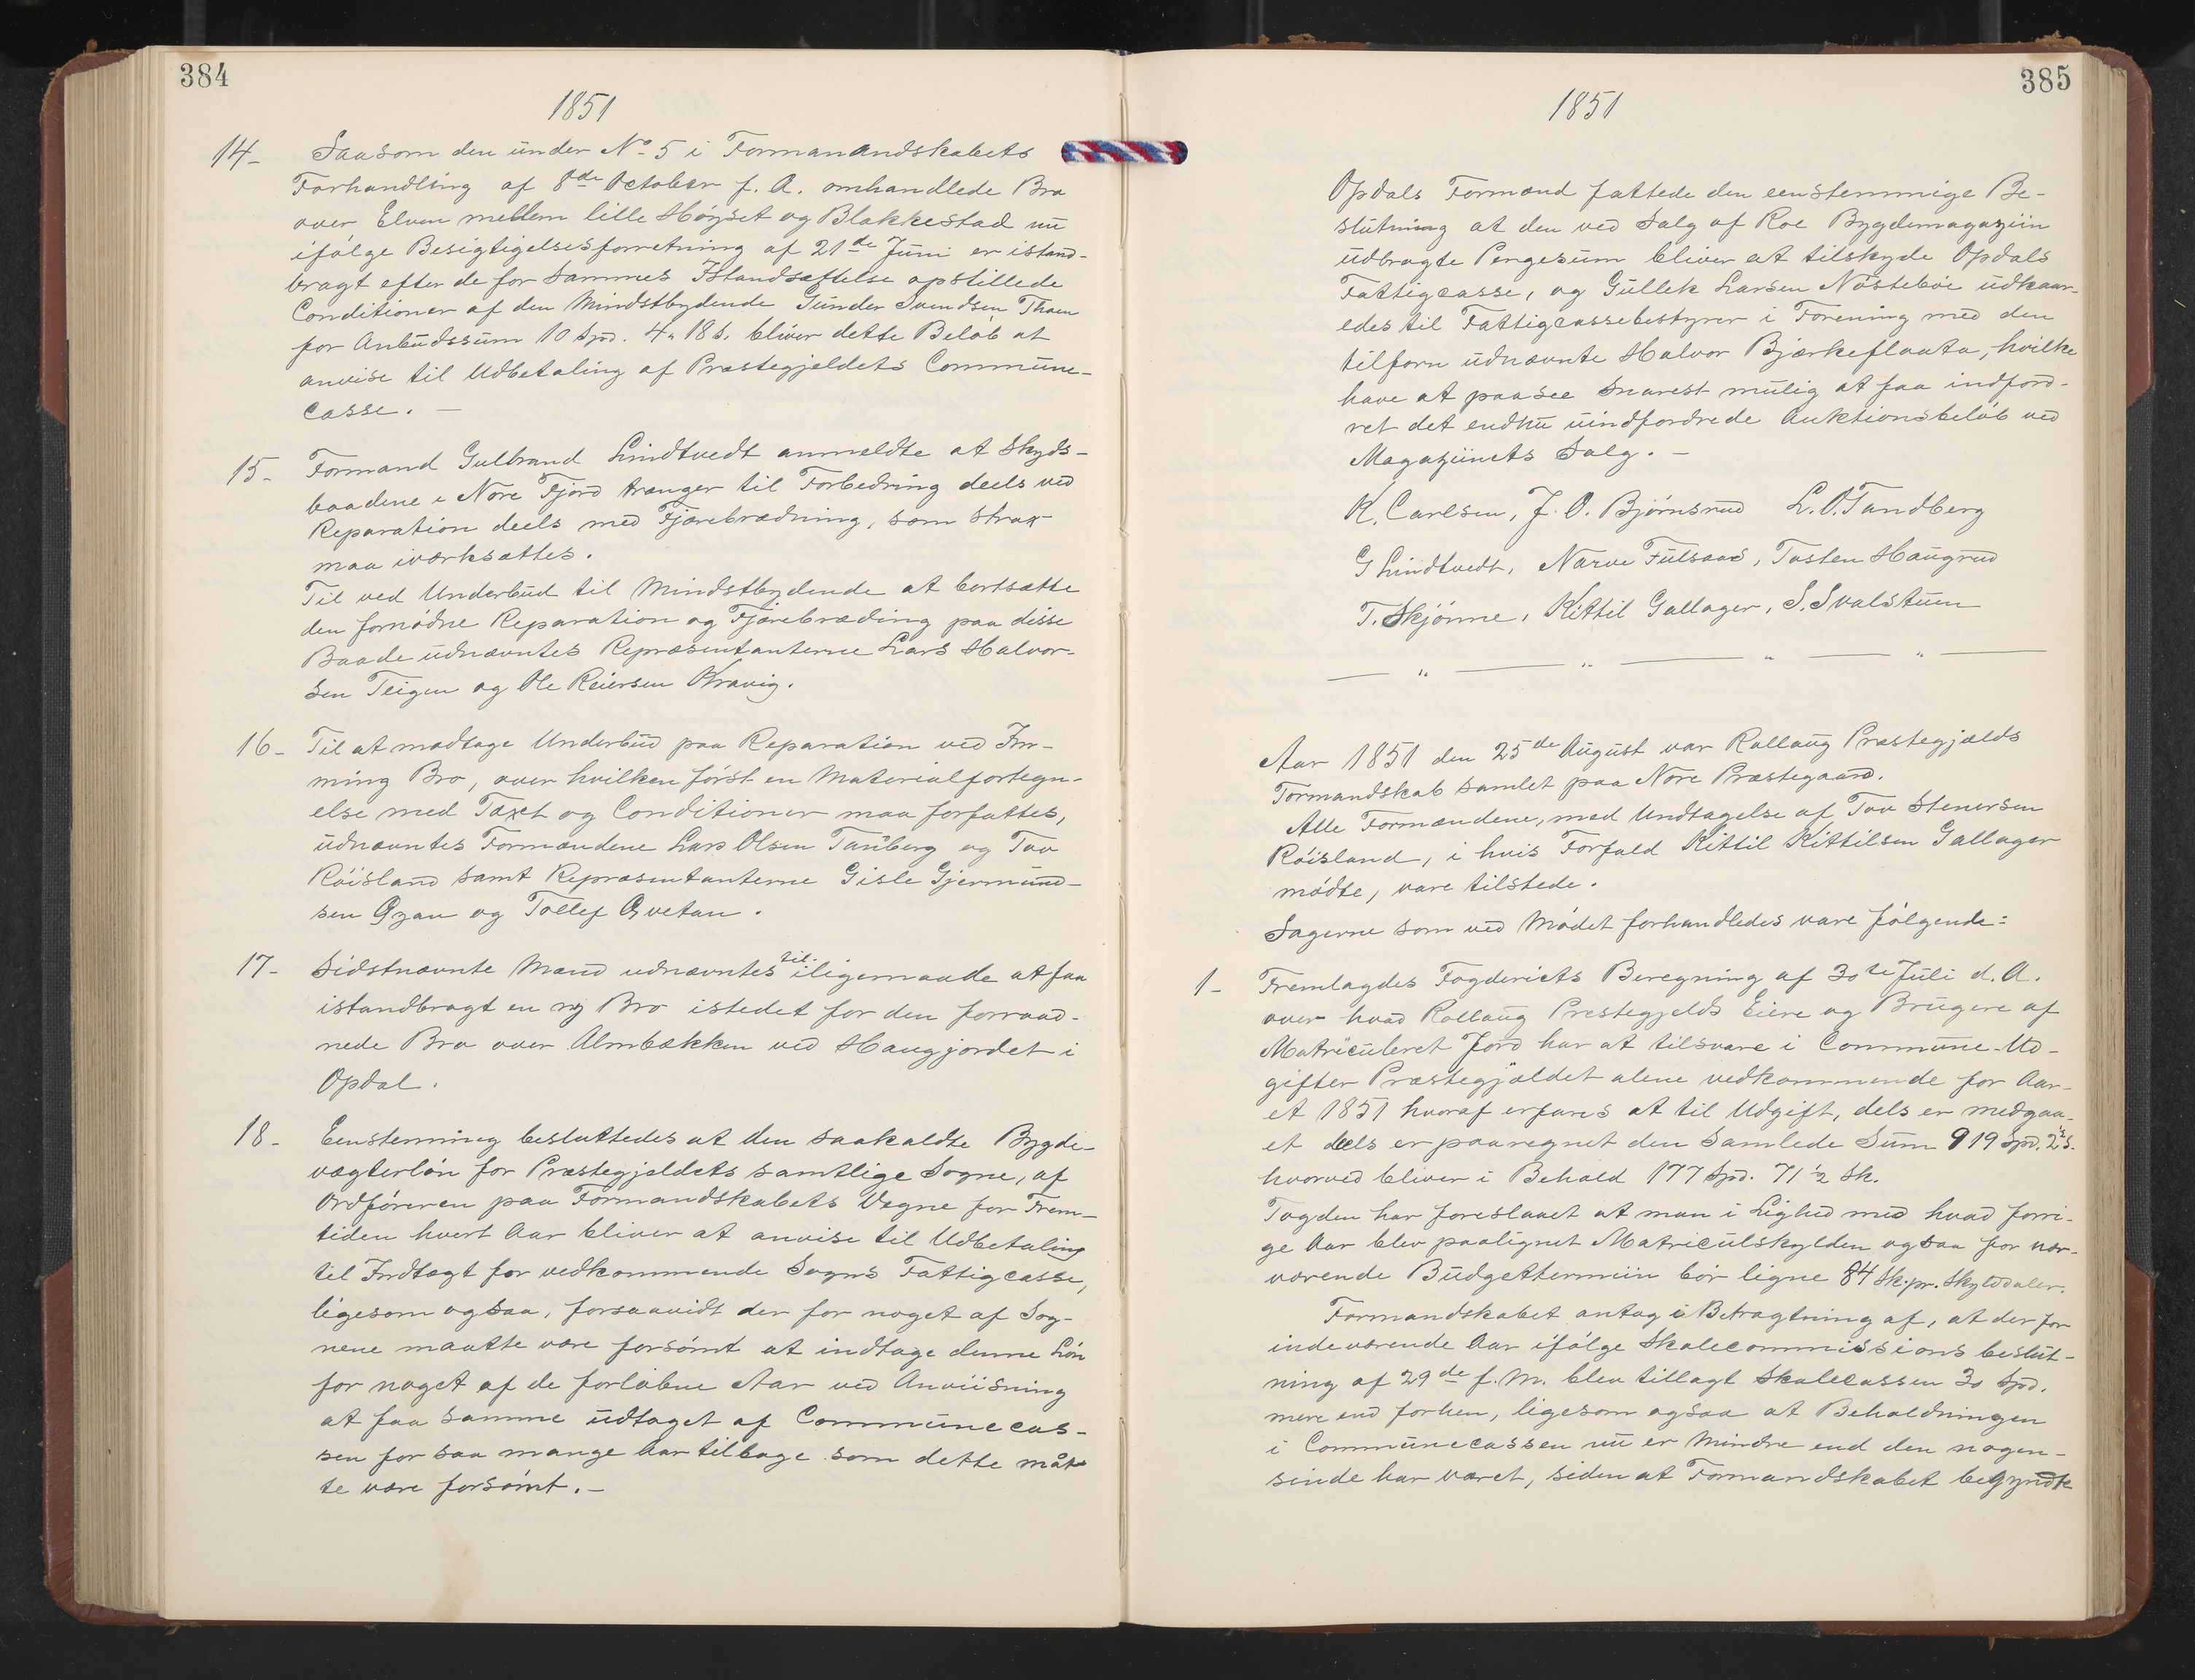 384
1851
14- Saasom den under No 5 i Formanandskabets
Forhandling af 8de October f. A. omhandlede Bro
over Elven mellem lille Høÿset og Blakkestad nu
ifølge Besigtigelsesforretning af 21de Juni er istand-
bragt efter de for Sammes Istandsættelse opstillede
Conditioner af den Mindstbydende Gunder Svendsen Thoen
for Anbudssum 10 Spd. 4 " 18 s. bliver dette Beløb at
anvise til Udbetaling af Præstegjeldets Commune-
casse. —
15- Formand Gulbrand Lindtvedt anmeldte at Skyds-
baadene i Nore Fjord trænger til Forbedring deels ved
Reparation deels med Fjærebrædning, som strax
maa iværksættes.
Til ved Underbud til Mindstbydende at bortsætte
den fornødne Reparation og Fjærebræding paa disse
Baade udnævntes Repræsentanterne Lars Halvor-
sen Teigen og Ole Reiersen Kravig.
16- Til at modtage Underbud paa Reparation ved Im-
ming Bro, over hvilken først en Materialfortegn-
else med Taxt og Conditioner maa forfattes,
udnævntes Formændene Lars Olsen Tanberg og Tov
Röisland samt Repræsentanterne Gisle Gjermund-
sen Øyan og Tollef Qvetan.
17- Sidstnævnte Mænd udnævntes til iligemaade at faa
istandbragt en ny Bro istedet for den forraad-
nede Bro over Almbækken ved Haugjordet i
Opdal.
18- Eenstemmig besluttedes at den saakaldte Bygde-
vægterløn for Præstegjeldets samtlige Sogne, af
Ordføreren paa Formandskabets Vegne for Frem-
tiden hvert Aar bliver at anvise til Udbetaling
til Indtægt for vedkommende Sogns Fattigcasse,
ligesom ogsaa, forsaavidt der for noget af Sog-
nene maatte være forsømt at indtage denne Løn
for noget af de forløbne Aar ved Anviisning
at faa samme udtaget af Communecas-
sen for saa mange Aar tilbage som dette måt-
te være forsømt. —
385
1851
Opdals Formænd fattede den eenstemmige Be-
slutning at den ved Salg af Roe Bygdemagaziin
udbragte Pengesum bliver at tilskyde Opdals
Fattigcasse, og Gullek Larsen Nösteböe udkaar-
edes til Fattigcassebestyrer i Forening med den
tilforn udnævnte Halvor Bjærkeflaata, hvilke
have at paasee snarest mulig at faa indford-
ret det endnu uindfordrede Auktionsbeløb ved
Magaziinets Salg. —
K. Carlsen, J. O. Bjørnsrud L. O. Tandberg
G Lindtvedt, Narve Fulsaas, Tosten Haugrud
T. Skjönne, Kittil Gallager, S. Svalstuen
Aar 1851 den 25de August var Rollaug Præstegjælds
Formandskab samlet paa Nore Præstegaard.
Alle Formændene, med Undtagelse af Tov Stenersen
Röisland, i hvis Forfald Kittil Kittilsen Gallager
mødte, vare tilstede.
Sagerne som ved Mødet forhandledes vare følgende:
1- Fremlagdes Fogderiets Beregning af 30te Juli d. A.
over hvad Rollaug Prestegjelds Eiere og Brugere af
Matriculeret Jord har at tilsvare i Commune-Ud-
gifter Præstegjældet alene vedkommende for Aar-
et 1851 hvoraf erfares at til Udgift, dels er medgaa-
et deels er paaregnet den samlede Sum 919 Spd. 2½ s.
hvorved bliver i Behold 177 Spd. 71 ½ Sk.
Fogden har foreslaaet at man i Lighed med hvad forri-
ge Aar blev paalignet Matriculskylden ogsaa for nær-
værende Budgettermiin bör ligne 84 Sk. pr. Skylddaler.
Formandskabet antog i Betragtning af, at der for
indeværende Aar ifølge Skolecommissions beslut-
ning af 29de f. M. blev tillagt Skolecassen 30 Spd.
mere end forhen, ligesom ogsaa at Beholdningen
i Communecassen nu er mindre end den nogen-
sinde har været, siden at Formandskabet begyndte